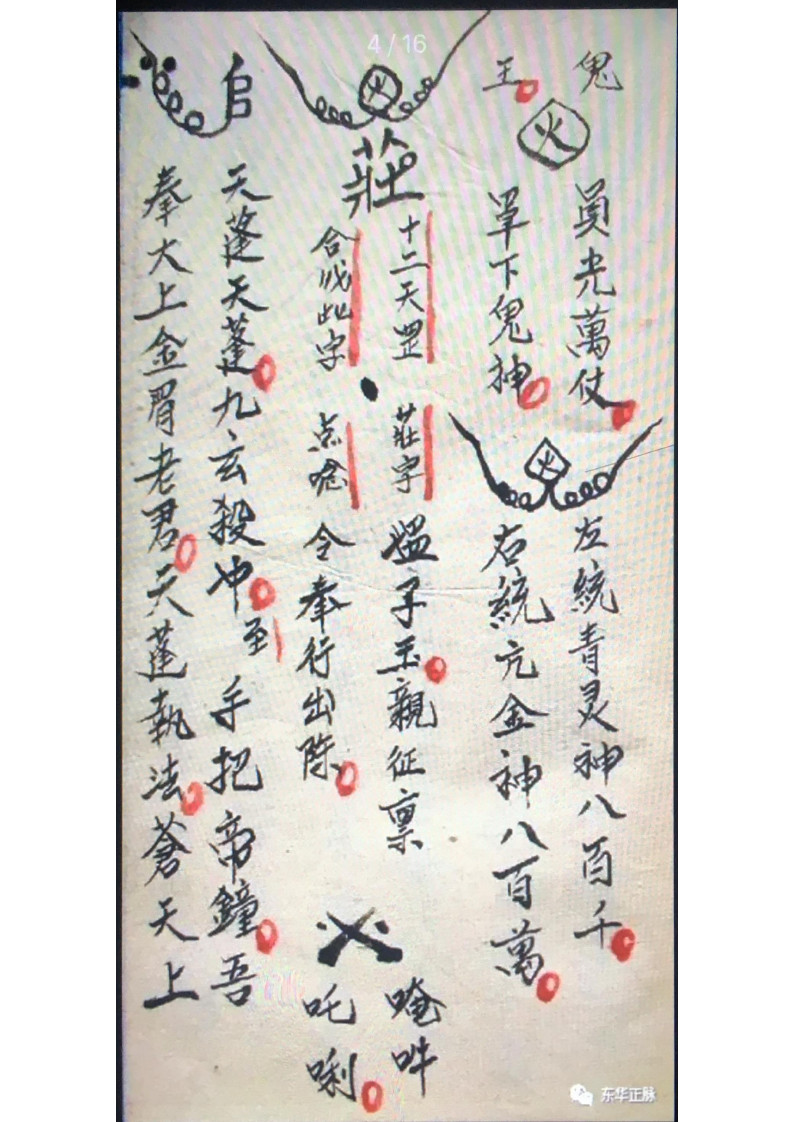 4 / 16
鬼
王
火
員光萬仗
罩下鬼神
火
左統青灵神八百千
右統亢金神八百萬
火
莊
十二天罡
合成此字
莊字
点唸
孟子玉親征禀
令奉行出陈
唵吽
吒唎
启
天蓬天蓬九玄殺冲至手把帝鐘吾
奉大上金骨老君天蓬執法蒼天上
东华正脉